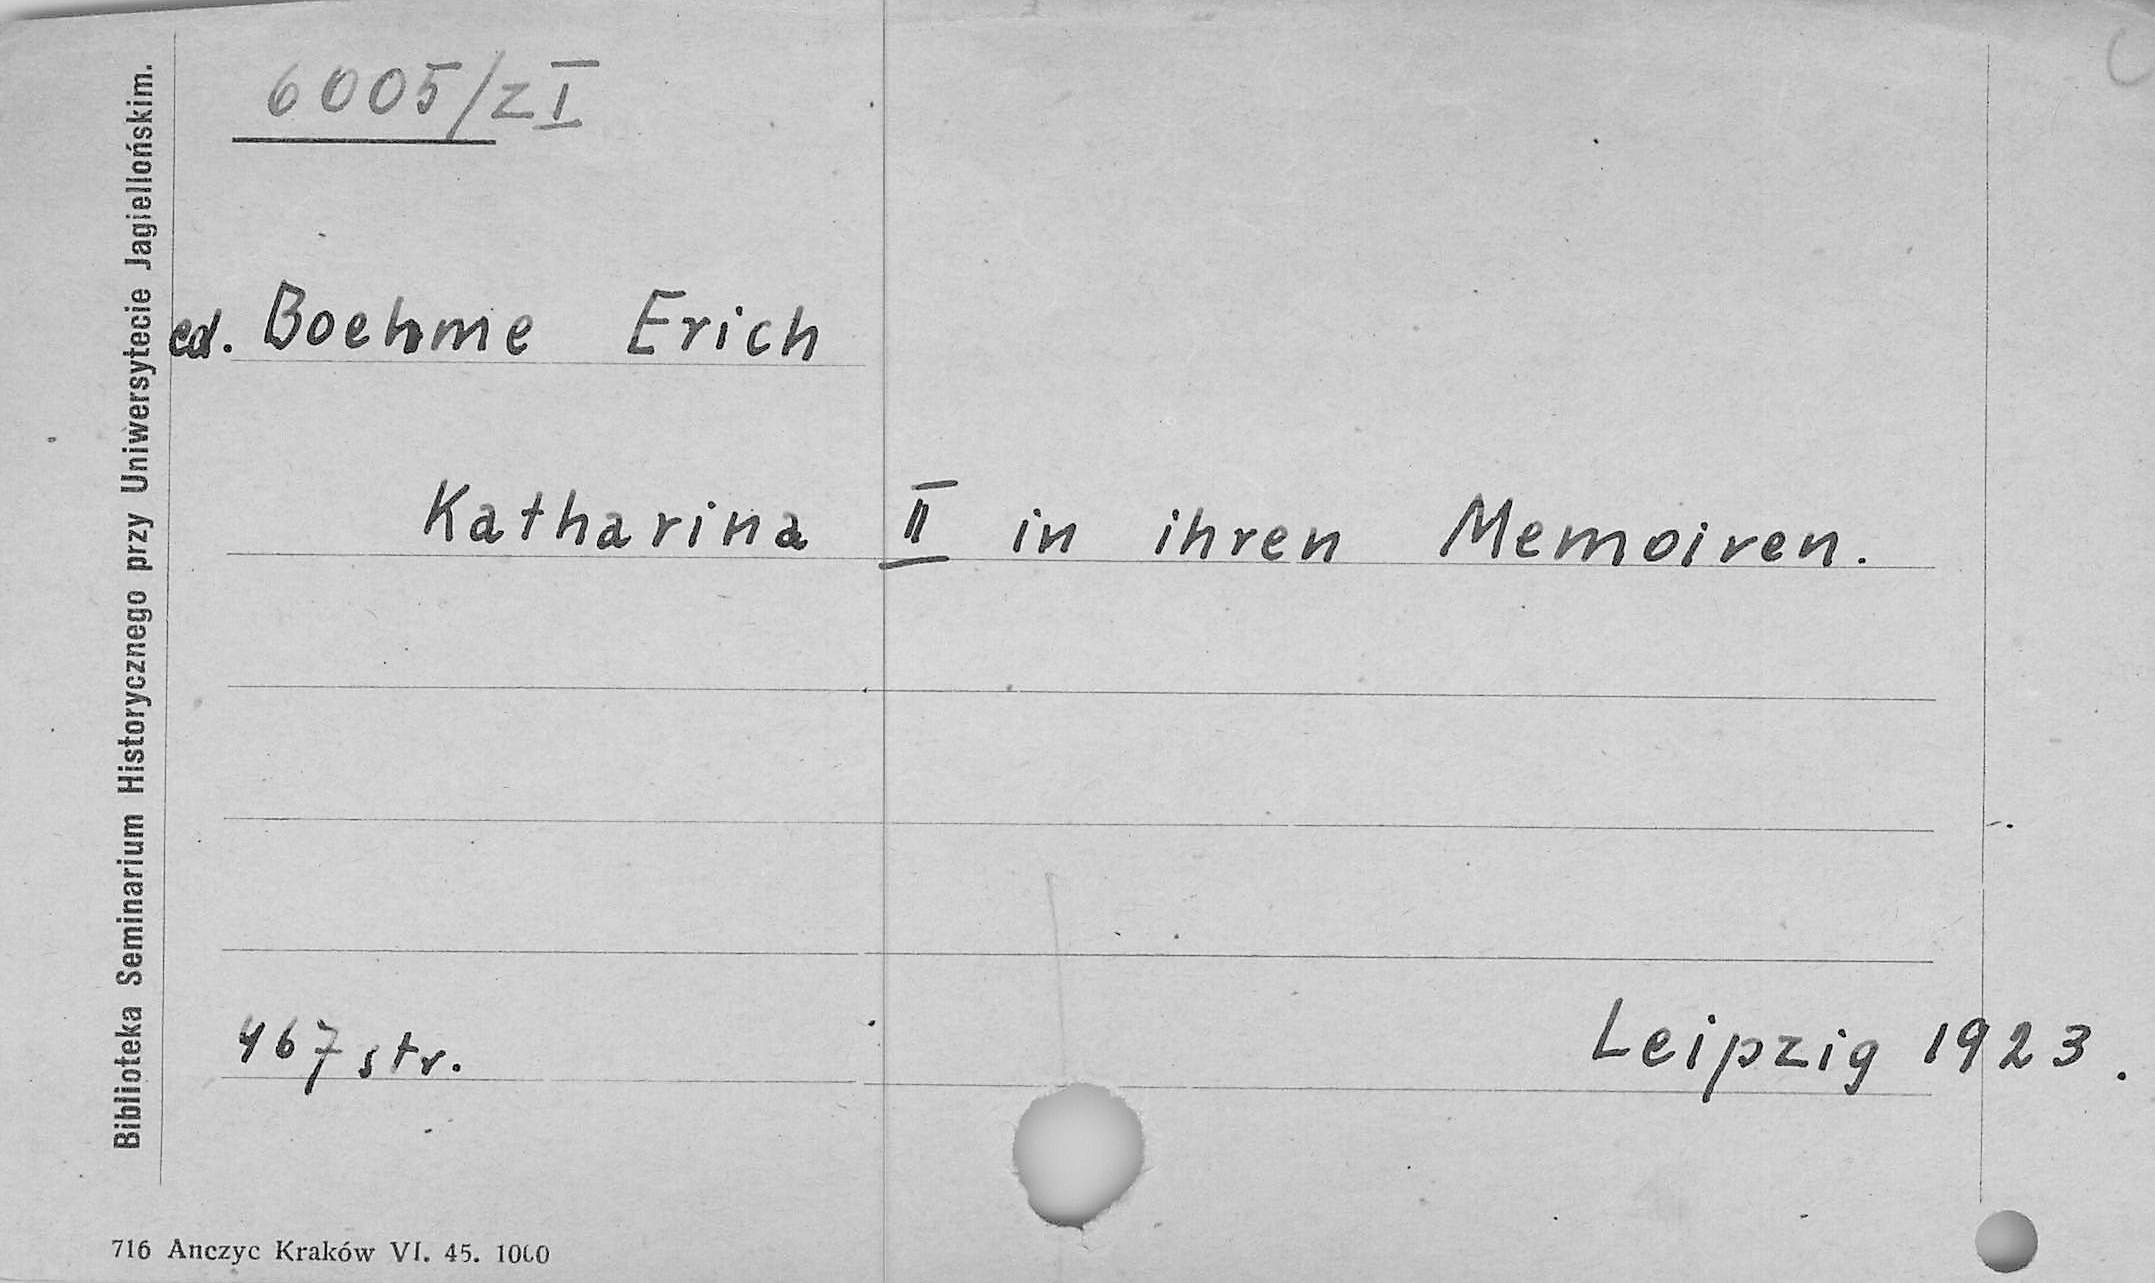 6005/ZI
ed. Boehme Erich
Katharina II in ihren Memoiren.
467 str.
Leipzig 1923.
Biblioteka Seminarium Historycznego przy Uniwersytecie Jagiellońskim.
716 Anczyc Kraków VI. 45. 1000